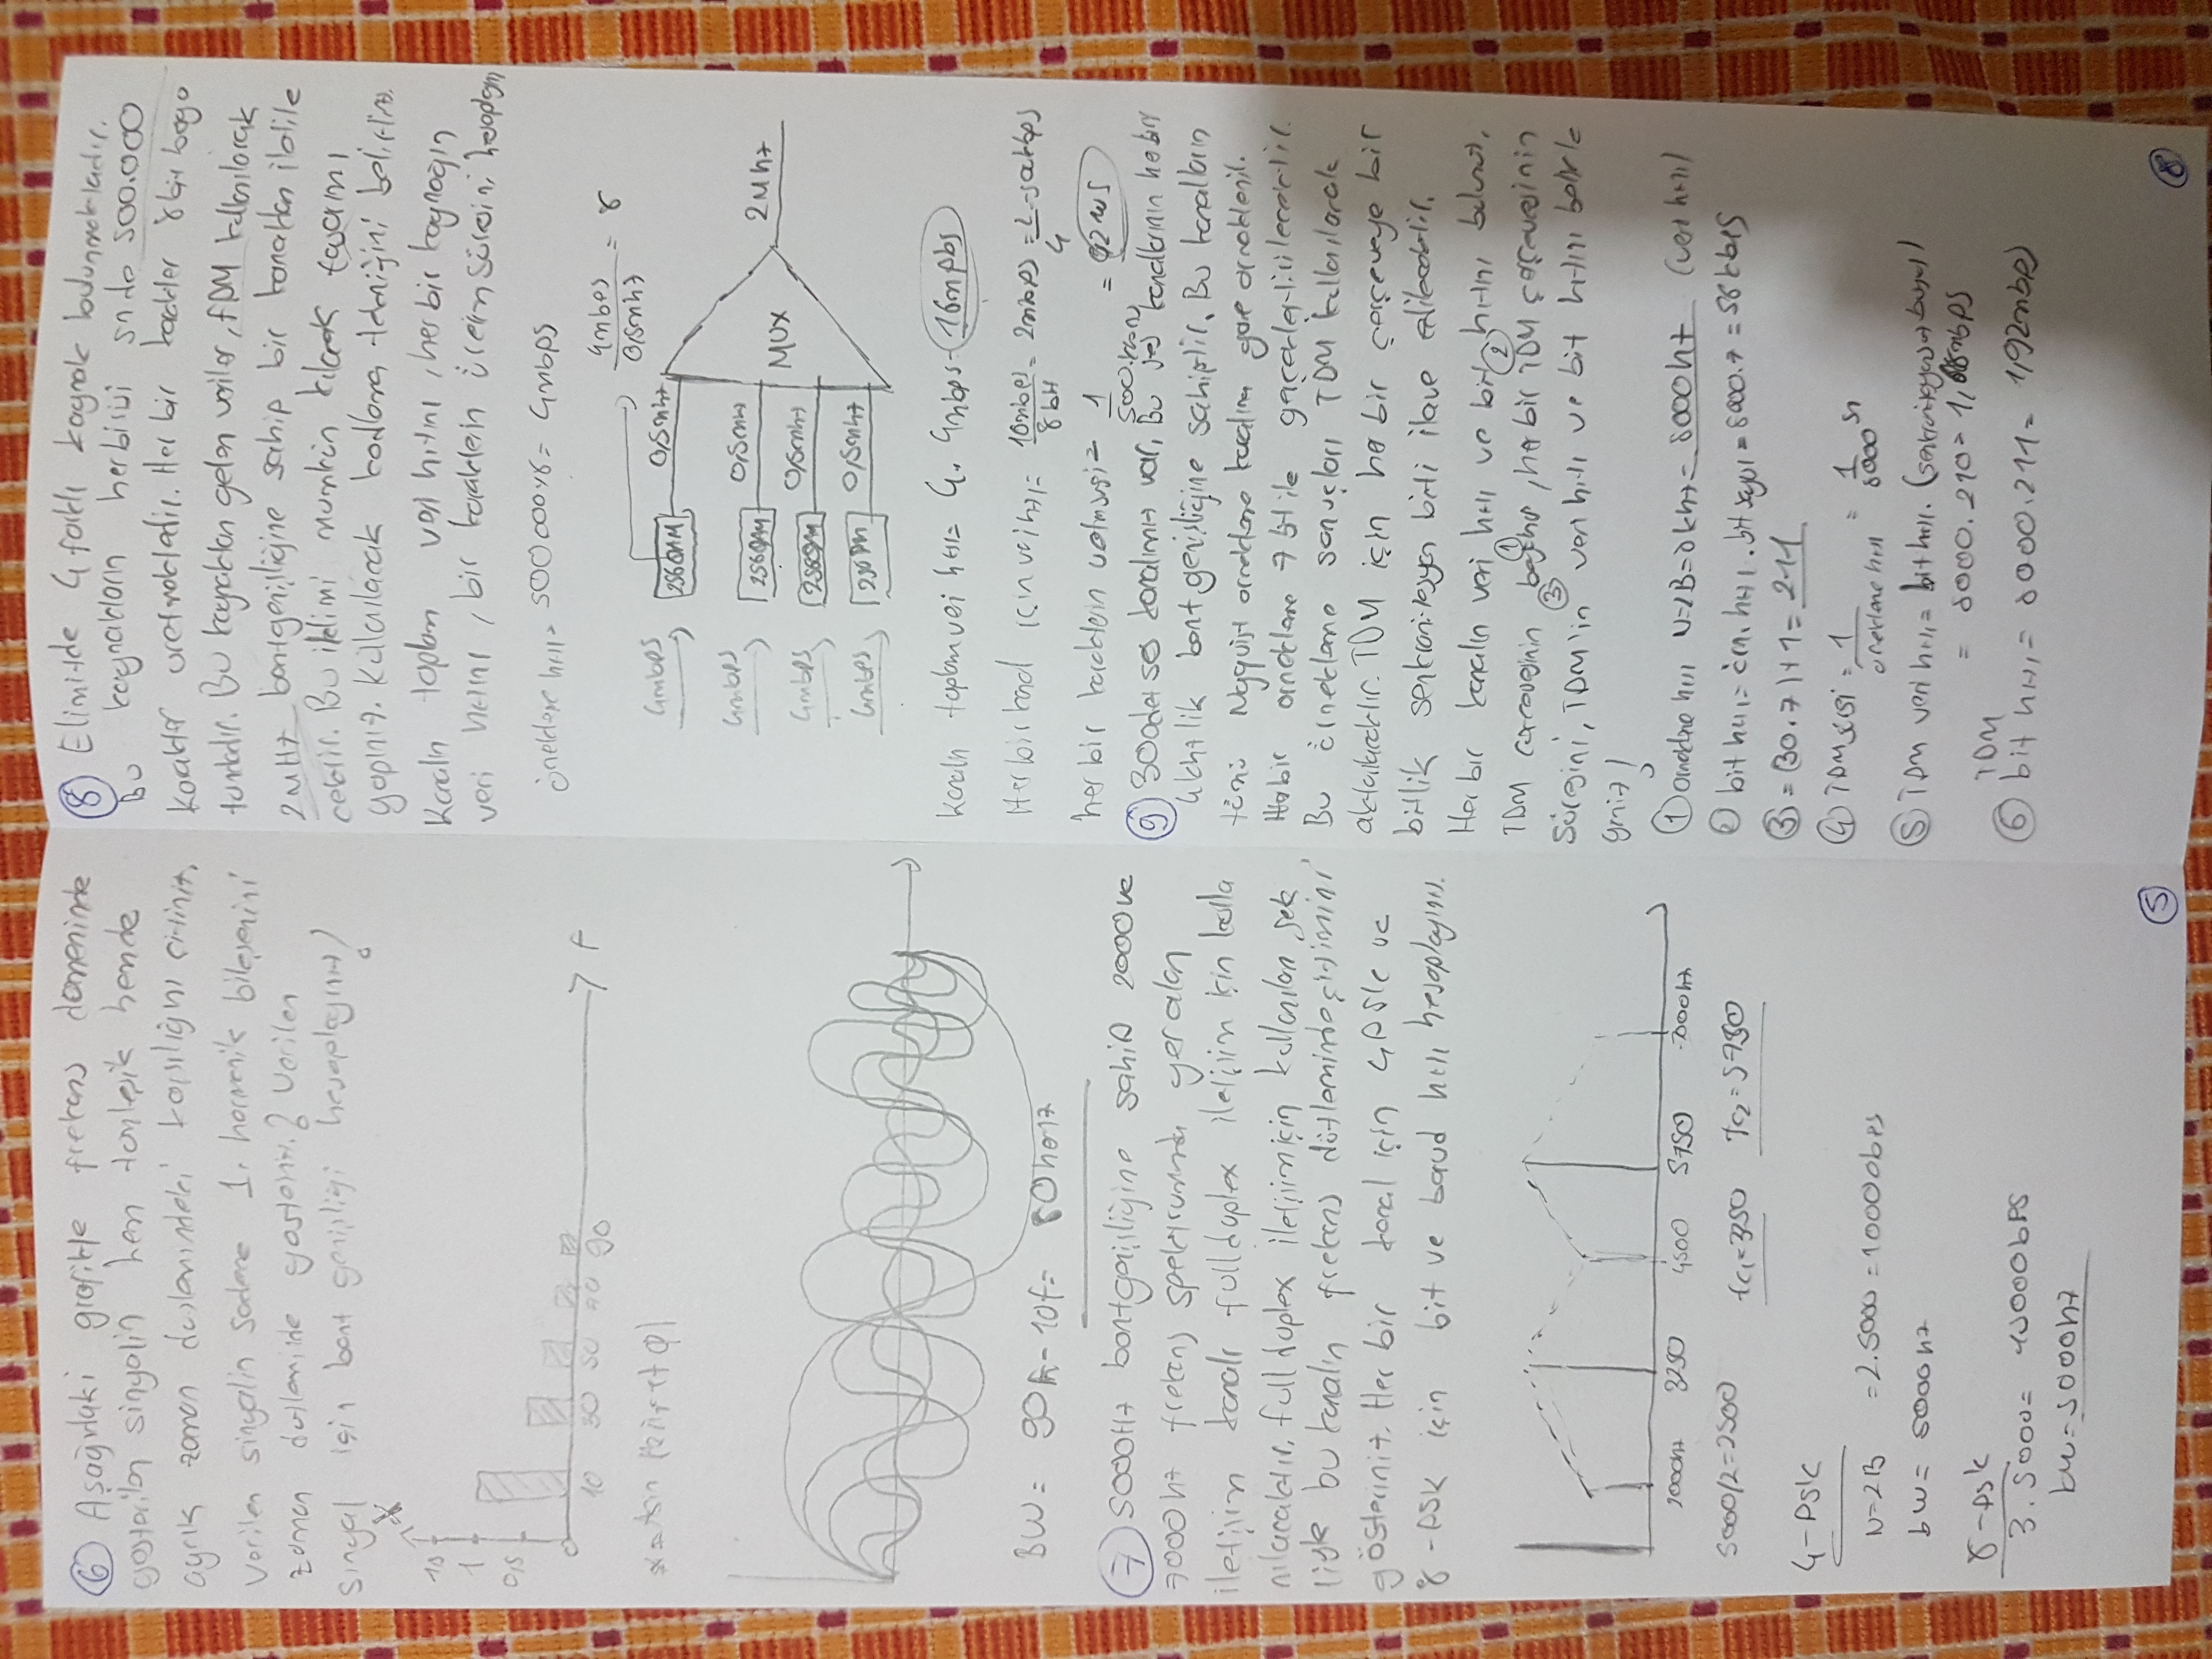 6 Aşağıdaki grafikte frekans domeninde
gösterilen sinyalin hem tümleşik hemde
ayrık zaman düzlemindeki karşılığını çiziniz.
Verilen sinyalin sadece 1. harmonik bileşenini
zaman düzleminde gösteriniz.? Verilen
sinyal için bant genişliği hesaplayınız!
1
0,5
0
10 30 50 70 90
F
BW= 90f-10f= 80hertz
7 5000Hz bantgenişliğine sahip 2000 ve
7000hz frekans spektrumunda yer alan
iletişim kanalı full duplex iletişim için kulla
nılacaktır. full duplex iletişim için kullanılan şek
liyle bu kanalın frekans düzleminde çizimini
gösteriniz. Her bir kanal için 4PSK ve
8-PSK için bit ve baud hızı hesaplayınız.
2000hz 3250 4500 5750 7000hz
5000/2=2500 fc1=3250 fc2=5750
4-PSK
N=2B =2.5000=10000bps
bw= 5000hz
8-psk
3.5000= 15000bPS
bw=5000hz
5
8 Elimizde 4 farklı kaynak bulunmaktadır.
Bu kaynakların herbirisi sn de 500.000
karakter üretmektedir. Her bir karakter 8 bit boyu
tundadır. Bu kaynaktan gelen veriler, FDM kullanılarak
2MHz bantgenişliğine sahip bir kanaldan iletile
cektir. Bu iletimi mümkün kılacak tasarımı
yapınız. Kullanılacak kodlama tekniğini belirtiniz.
Kanalın toplam veri hızını, her bir kaynağın
veri hızını, bir karakterin üretim süresini hesaplayın
örnekleme hızı= 500000x8= 4mbps
4mbps / 0,5mhz = 8
4mbps 256QAM 0,5mhz
4mbps 256QAM 0,5mhz
4mbps 256QAM 0,5mhz
4mbps 0,5mhz
MUX 2Mhz
kanalın toplam veri hızı= 4. 4mbps= 16mpbs
Her bir için veri hızı=
her bir karakterin =
9 30 adet ses kanalımız var. Bu ses kanallarının her biri
4khzlik bant genişliğine sahiptir. Bu kanalların
tümü Nyquist örnekleme kuralına göre örneklenir.
Her bir örnekleme 7 bit ile gerçekleştirilecektir.
Bu örnekleme sonuçları TDM kullanılarak
aktarılacaktır. TDM için her bir çerçeveye bir
bitlik senkronizasyon biti ilave edilecektir.
Her bir kanalın veri hızı ve bit hızını bulunuz,
TDM çerçevesinin boyutu, her bir TDM çerçevesinin
süresini, TDM'in veri hızı ve bit hızını belirle
yiniz!
1 örnekleme hızı N=2B=8khz= 8000hz (veri hızı)
2 bit hızı= örn. hızı . bit sayısı = 8000.7=56kbps
3 = (30.7)+1= 211
4 TDM süresi = 1 / örnekleme hızı = 1 / 8000 sn
5 TDM veri hızı= bit hızı.
= 8000.210= mbps
6 TDM bit hızı= 8000.211= 1,92mbps
8